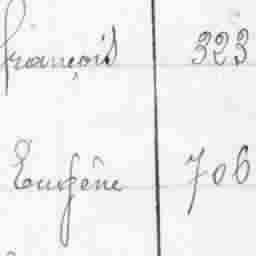 françois 323
Eugène 706